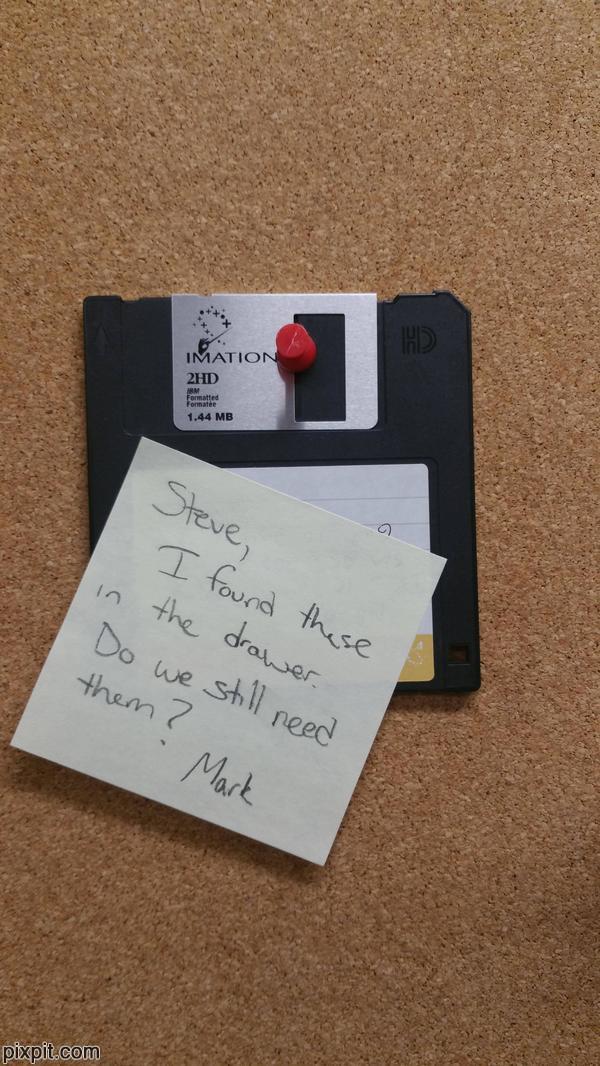 IMATION
2HD
IBM
Formatted
Formatée
1.44 MB
HD
Steve,
I found these
in the drawer.
Do we still need
them?
Mark
pixpit.com